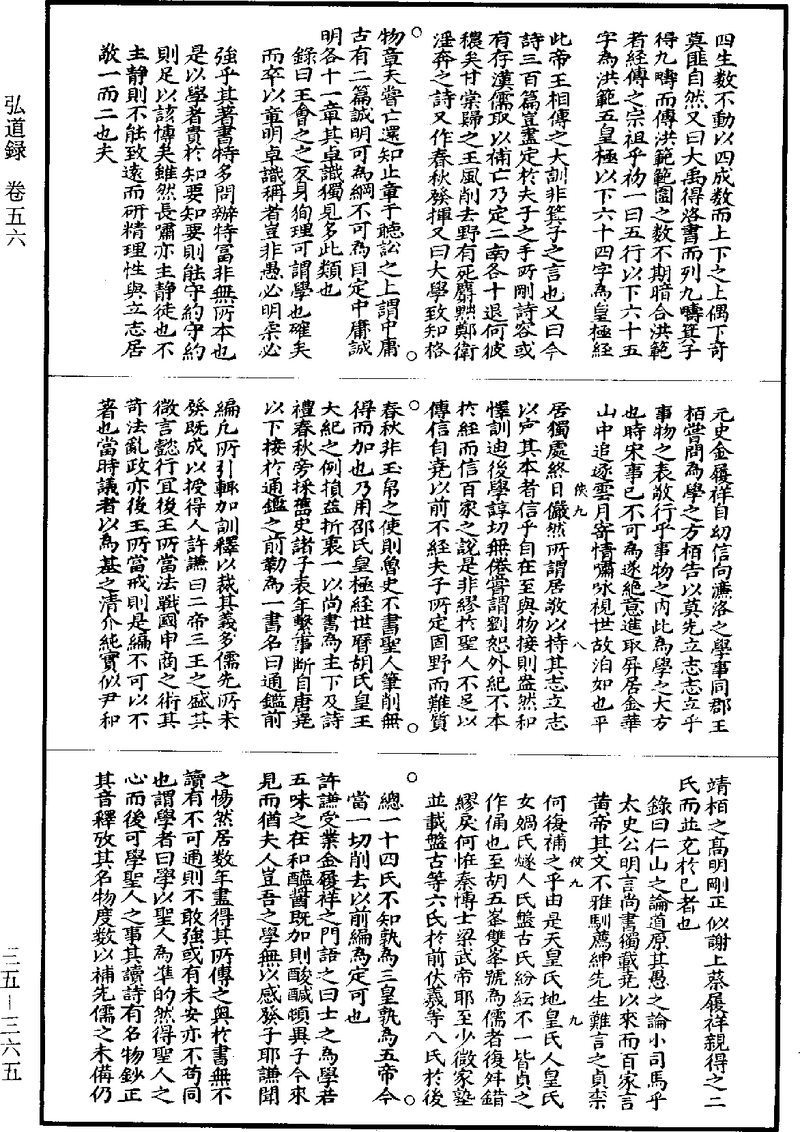 弘道録　卷五六
四生数不動以四成数而上下之上偶下奇
莫匪自然又曰大禹得洛書而列九疇箕子
得九疇而傳洪範範圍之数不期暗合洪範
者經傳之宗祖乎初一曰五行以下六十五
字為洪範五皇極以下六十四字為皇極經
此帝王相傳之大訓非箕子之言也又曰今
詩三百篇豈盡定於夫子之手所刪詩容或
有存漢儒取以補亡乃定二南各十退何彼
穠矣甘棠歸之王風削去野有死麕黜鄭衛
淫奔之詩又作春秋發揮又曰大學致知格
物章天嘗亡還知止章于聽訟之上謂中庸
古有二篇誠明可為綱不可為目定中庸誠
明各十一章其卓識獨見多此類也
錄曰王會之之反身徇理可謂學也確矣
而卒以童明卓識稱者豈非愚必明柔必
強乎其著書特多問辦特富非無所本也
是以學者貴於知要知要則能守約守約
則足以該博矣雖然長嘯亦主静徒也不
主静則不能致遠而研精理性與立志居
敬一而二也夫
元史金履祥自幼信向濂洛之學事同郡王
栢嘗問為學之方栢告以莫先立志志立乎
事物之表敬行乎事物之内此為學之大方
也時宋事已不可為遂絶意進取屏居金華
山中追逐雲月寄情嘯咏視世故泊如也平
俠九
八
居獨處終日儼然所謂居敬以持其志立志
以定其本者信乎自在至與物接則盎然和
懌訓迪後學諄切無倦嘗謂劉恕外紀不本
於經而信百家之說是非繆於聖人不足以
傳信自堯以前不經夫子所定固野而難質
春秋非玉帛之使則魯史不書聖人筆削無
得而加也乃用邵氏皇極經世曆胡氏皇王
大紀之例損益折衷一以尚書為主下及詩
禮春秋旁採舊史諸子表年繫事斷自唐堯
以下接於通鑑之前勒為一書名曰通鑑前
編凡所引輒加訓釋以裁其義多儒先所未
發既成以授得人許謙曰二帝三王之盛其
微言懿行宜後王所當法戰國申商之術其
苛法亂政亦後王所當戒則是編不可以不
著也當時議者以為基之清介純實似尹和
靖栢之高明剛正似謝上蔡履祥親得之二
氏而並充於己者也
錄曰仁山之論道原其愚之論小司馬乎
太史公明言尚書獨載堯以來而百家言
黄帝其文不雅馴薦紳先生難言之貞柰
使九
九
何復補之乎由是天皇氏地皇氏人皇氏
女媧氏燧人氏盤古氏紛紜不一皆貞之
作俑也至胡五峯雙峯號為儒者復舛錯
繆戾何恠秦博士梁武帝耶至少微家塾
並載盤古等六氏於前伏羲等八氏於後
總一十四氏不知孰為三皇孰為五帝今
當一切削去以前編為定可也
許謙受業金履祥之門語之曰士之為學若
五味之在和醯醬既加則酸鹹頓異子今來
見而猶夫人豈吾之學無以感發子耶謙聞
之惕然居数年盡得其所傳之奥於書無不
讀有不可通則不敢強或有未安亦不苟同
也謂學者曰學以聖人為凖的然得聖人之
心而後可學聖人之事其讀詩有名物鈔正
其音釋攷其名物度数以補先儒之未備仍
三五—三六五